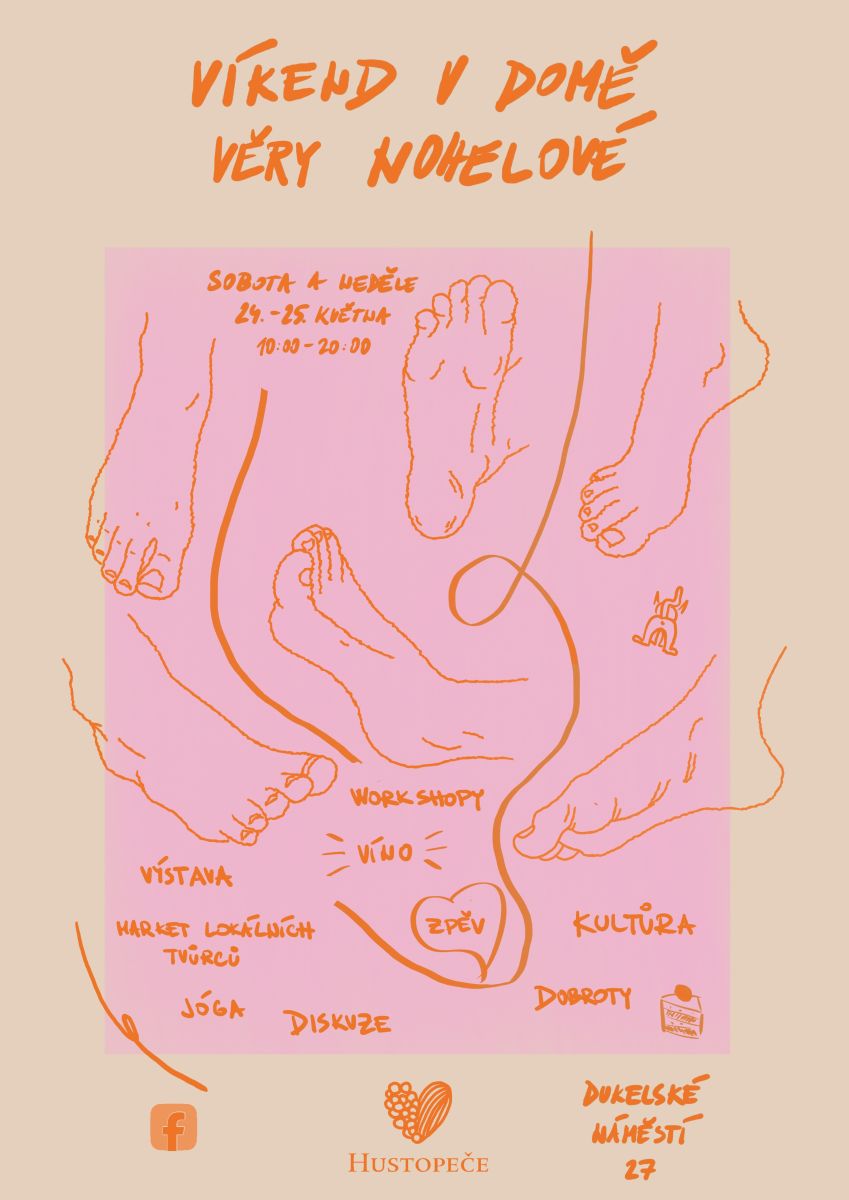 VÍKEND V DOMĚ
VĚRY NOHELOVÉ
SOBOTA A NEDĚLE
24.-25. KVĚTNA
10:00-20:00
WORKSHOPY
VÍNO
VÝSTAVA
ZPĚV
KULTŮRA
MARKET LOKÁLNÍCH
TVŮRCŮ
DOBROTY
JÓGA
DISKUZE
f
HUSTOPEČE
DUKELSKÉ
NÁMĚSTÍ
27